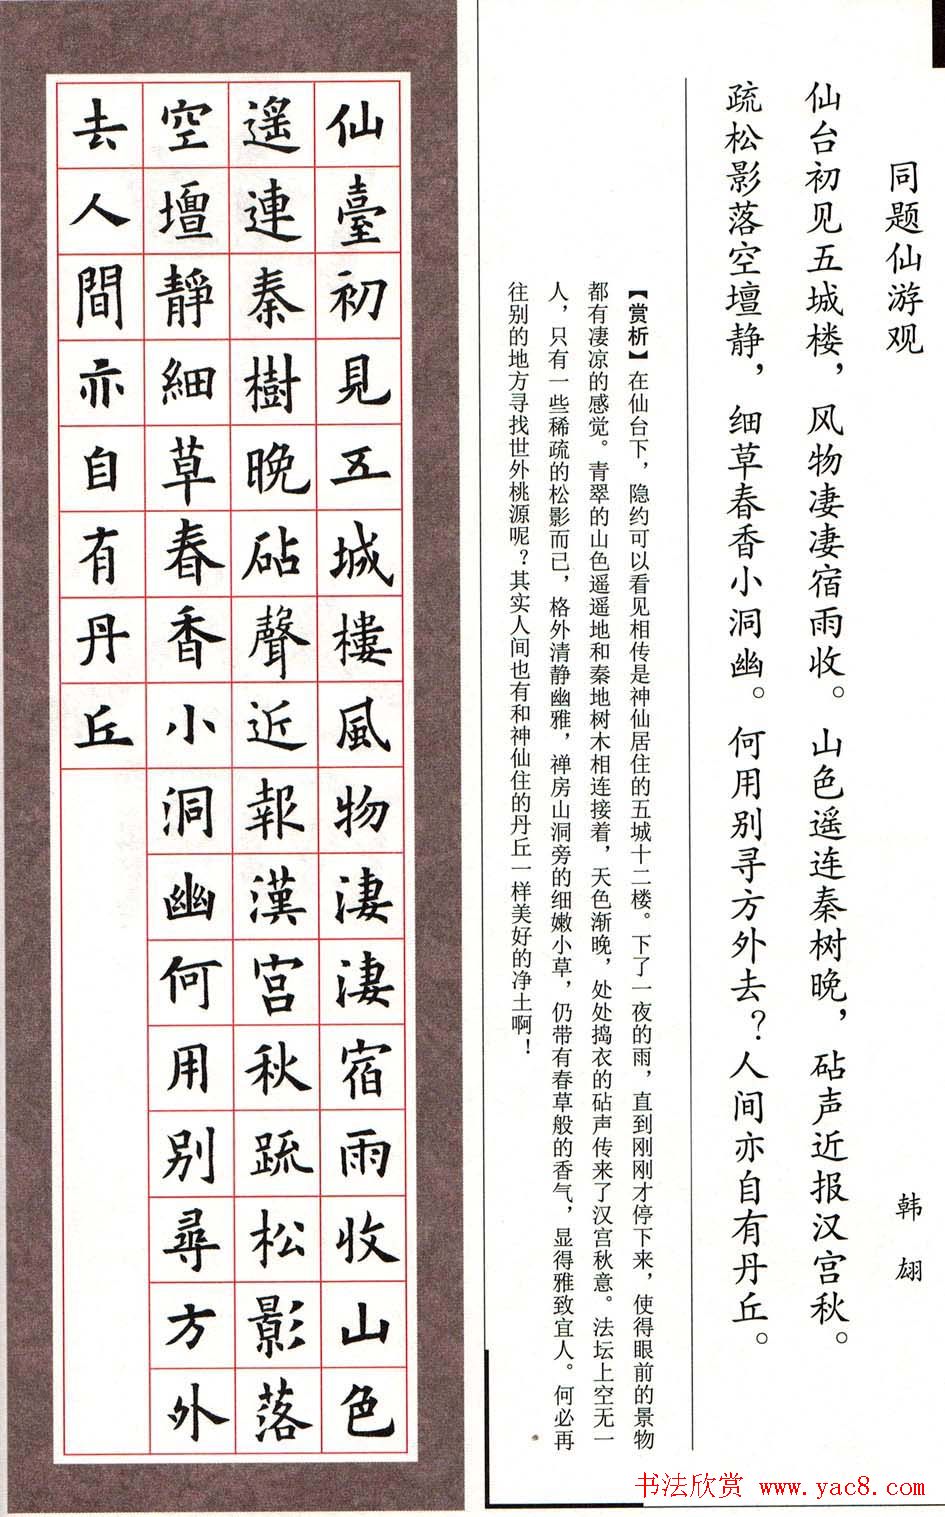 同题仙游观
韩翃
仙台初见五城楼，风物凄凄宿雨收。山色遥连秦树晚，砧声近报汉宫秋。
疏松影落空壇静，细草春香小洞幽。何用别寻方外去？人间亦自有丹丘。
【赏析】在仙台下，隐约可以看见相传是神仙居住的五城十二楼。下了一夜的雨，直到刚刚才停下来，使得眼前的景物
都有凄凉的感觉。青翠的山色遥遥地和秦地树木相连接着，天色渐晚，处处捣衣的砧声传来了汉宫秋意。法坛上空无一
人，只有一些稀疏的松影而已，格外清静幽雅，禅房山洞旁的细嫩小草，仍带有春草般的香气，显得雅致宜人。何必再
往别的地方寻找世外桃源呢？其实人间也有和神仙住的丹丘一样美好的净土啊！
仙臺初見五城樓風物淒淒宿雨收山色
遙連秦樹晚砧聲近報漢宮秋疏松影落
空壇靜細草春香小洞幽何用別尋方外
去人間亦自有丹丘
书法欣赏 www.yac8.com